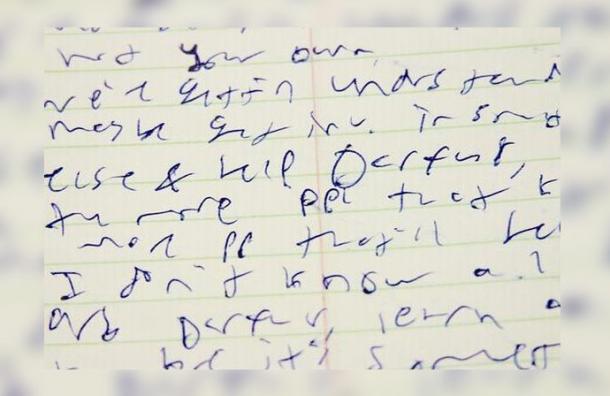 not your own
gettn undrstand
maybe get inv. in sm
else & help Darfur,
the more ppl that k
mor pp that'll he
I don't know a
Darfur, learn
be it's somet